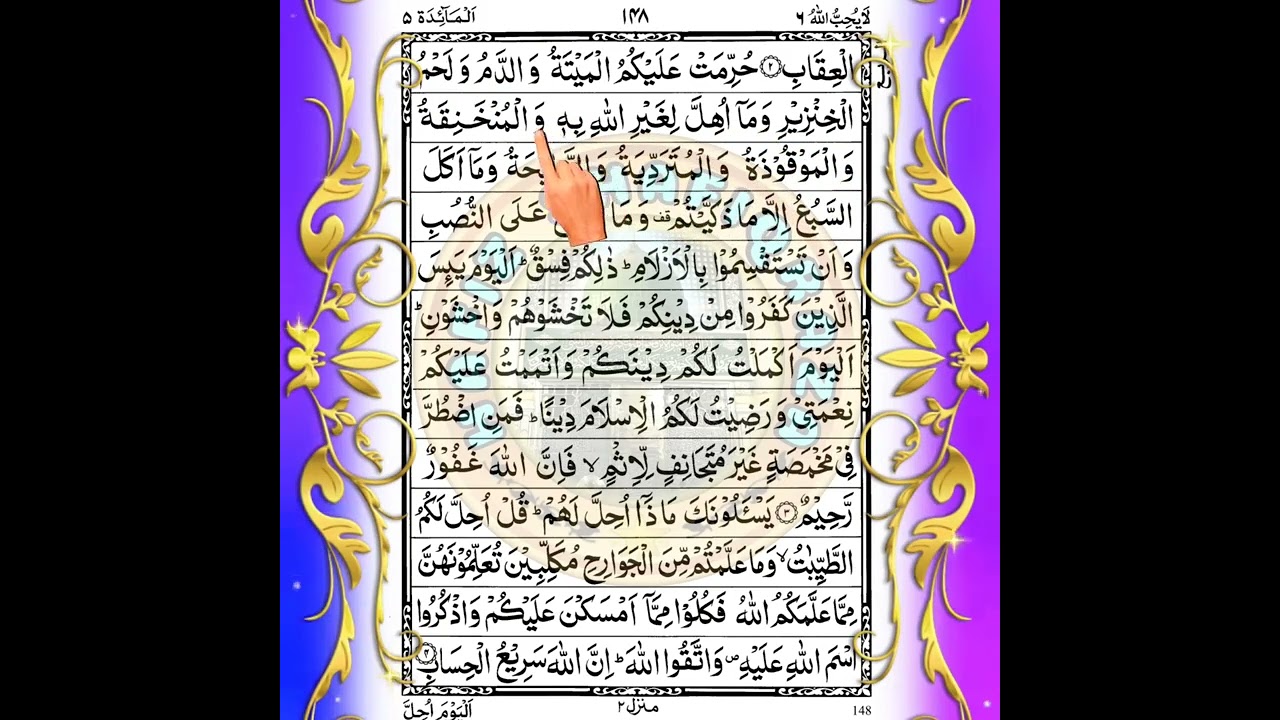 لَا يُحِبُّ اللّٰهُ ٦ ١٤٨ اَلْمَآئِدَة ٥
الْعِقَابِ ٢ حُرِّمَتْ عَلَيْكُمُ الْمَيْتَةُ وَ الدَّمُ وَ لَحْمُ
الْخِنْزِيْرِ وَ مَاۤ اُهِلَّ لِغَيْرِ اللّٰهِ بِهٖ وَ الْمُنْخَنِقَةُ
وَ الْمَوْقُوْذَةُ وَ الْمُتَرَدِّيَةُ وَ مَاۤ اَكَلَ
السَّبُعُ اِلَّا مَا ذَكَّيْتُمْ قف وَ مَا عَلَى النُّصُبِ
وَ اَنْ تَسْتَقْسِمُوْا بِالْاَزْلَامِ ؕ ذٰلِكُمْ فِسْقٌ ؕ اَلْيَوْمَ يَىِٕسَ
الَّذِيْنَ كَفَرُوْا مِنْ دِيْنِكُمْ فَلَا تَخْشَوْهُمْ وَ اخْشَوْنِ ؕ
اَلْيَوْمَ اَكْمَلْتُ لَكُمْ دِيْنَكُمْ وَ اَتْمَمْتُ عَلَيْكُمْ
نِعْمَتِيْ وَ رَضِيْتُ لَكُمُ الْاِسْلَامَ دِيْنًا ؕ فَمَنِ اضْطُرَّ
فِيْ مَخْمَصَةٍ غَيْرَ مُتَجَانِفٍ لِّاِثْمٍ ۙ فَاِنَّ اللّٰهَ غَفُوْرٌ
رَّحِيْمٌ ٣ يَسْـَٔلُوْنَكَ مَا ذَاۤ اُحِلَّ لَهُمْ ؕ قُلْ اُحِلَّ لَكُمُ
الطَّيِّبٰتُ ۙ وَ مَا عَلَّمْتُمْ مِّنَ الْجَوَارِحِ مُكَلِّبِيْنَ تُعَلِّمُوْنَهُنَّ
مِمَّا عَلَّمَكُمُ اللّٰهُ فَكُلُوْا مِمَّاۤ اَمْسَكْنَ عَلَيْكُمْ وَ اذْكُرُوا
اسْمَ اللّٰهِ عَلَيْهِ ص وَ اتَّقُوا اللّٰهَ ؕ اِنَّ اللّٰهَ سَرِيْعُ الْحِسَابِ ٤
اَلْيَوْمَ اُحِلَّ منزل ٢ 148